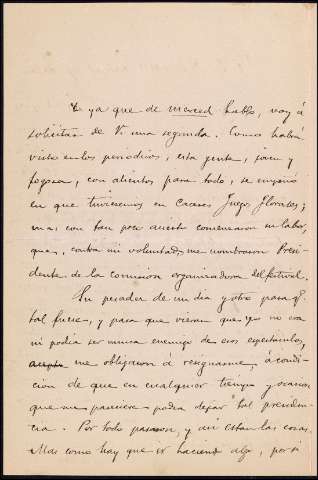 Y ya que de merced hablo, voy á
solicitar de V. una segunda. Como habrá
visto en los periódicos, esta gente, joven y
fogosa, con alientos para todo, se empeñó
en que tuviésemos en Caracas Juegos Florales;
mas, con tan poco acierto comenzaron su labor,
que, contra mi voluntad, me nombraron Presi-
dente de la comisión organizadora del festival.
Su pesadez de un día y otro para q.
tal fuera, y para que vieran que yo no era
ni podía ser nunca enemigo de esos espectáculos,
me obligaron á resignarme, á condi-
ción de que en cualquier tiempo y ocasión
que me pareciera podía dejar tal presiden-
cia. Por todo pasaron, y así están las cosas.
Mas como hay que ir haciendo algo, por si